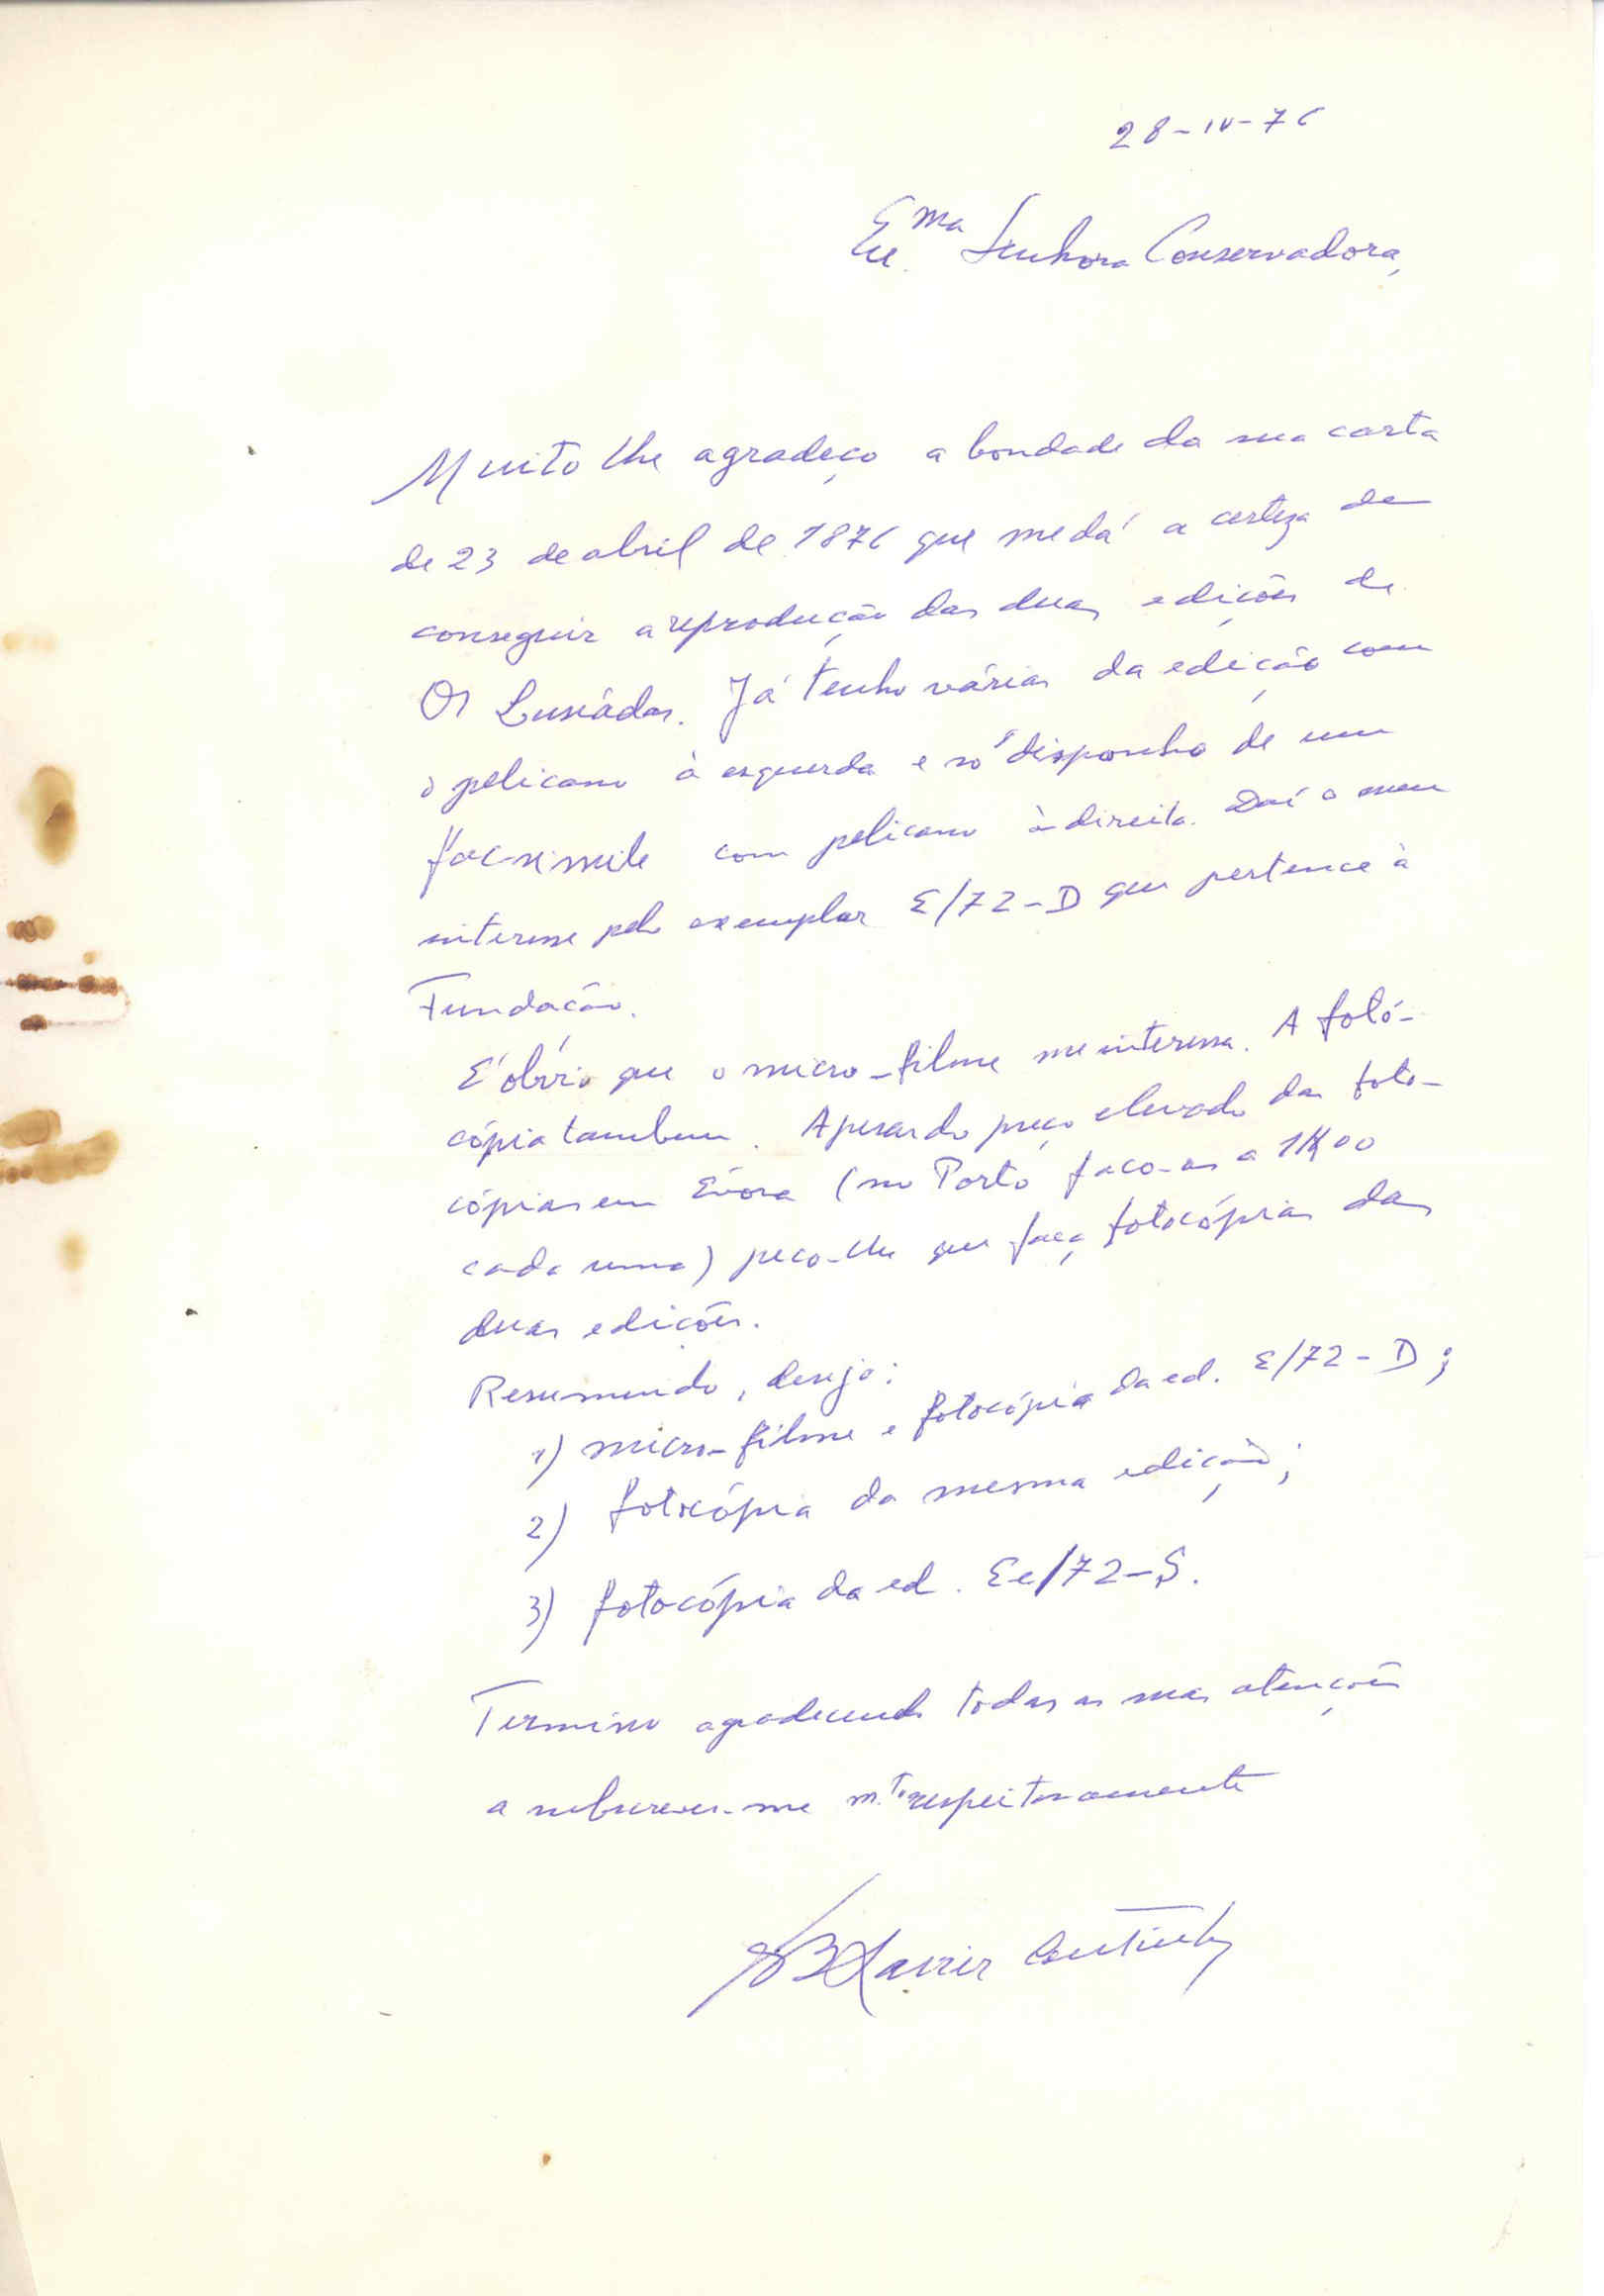 28-IV-76
Ex.ma Senhora Conservadora,
Muito lhe agradeço a bondade da sua carta
de 23 de abril de 1876 que me dá a certeza de
conseguir a reprodução das duas edições de
Os Lusíadas. Já tenho várias da edição com
o pelicano à esquerda e só disponho de um
facsimile com pelicano à direita. Daí o meu
interesse pelo exemplar E/72-D que pertence à
Fundação.
É óbvio que o micro-filme me interessa. A fotó-
cópia tambem. Apesar do preço elevado das foto-
cópias em Évora (no Porto faço-as a 1$00
cada uma) peço-lhe que faça fotocópias das
duas edições.
Resumindo, desejo:
1) micro-filme e fotocópia da ed. E/72-D;
2) fotocópia da mesma edição;
3) fotocópia da ed. Ee/72-S.
Termino agradecendo todas as suas atenções
a subscrever-me m.to respeitosamente
B Xavier Coutinho